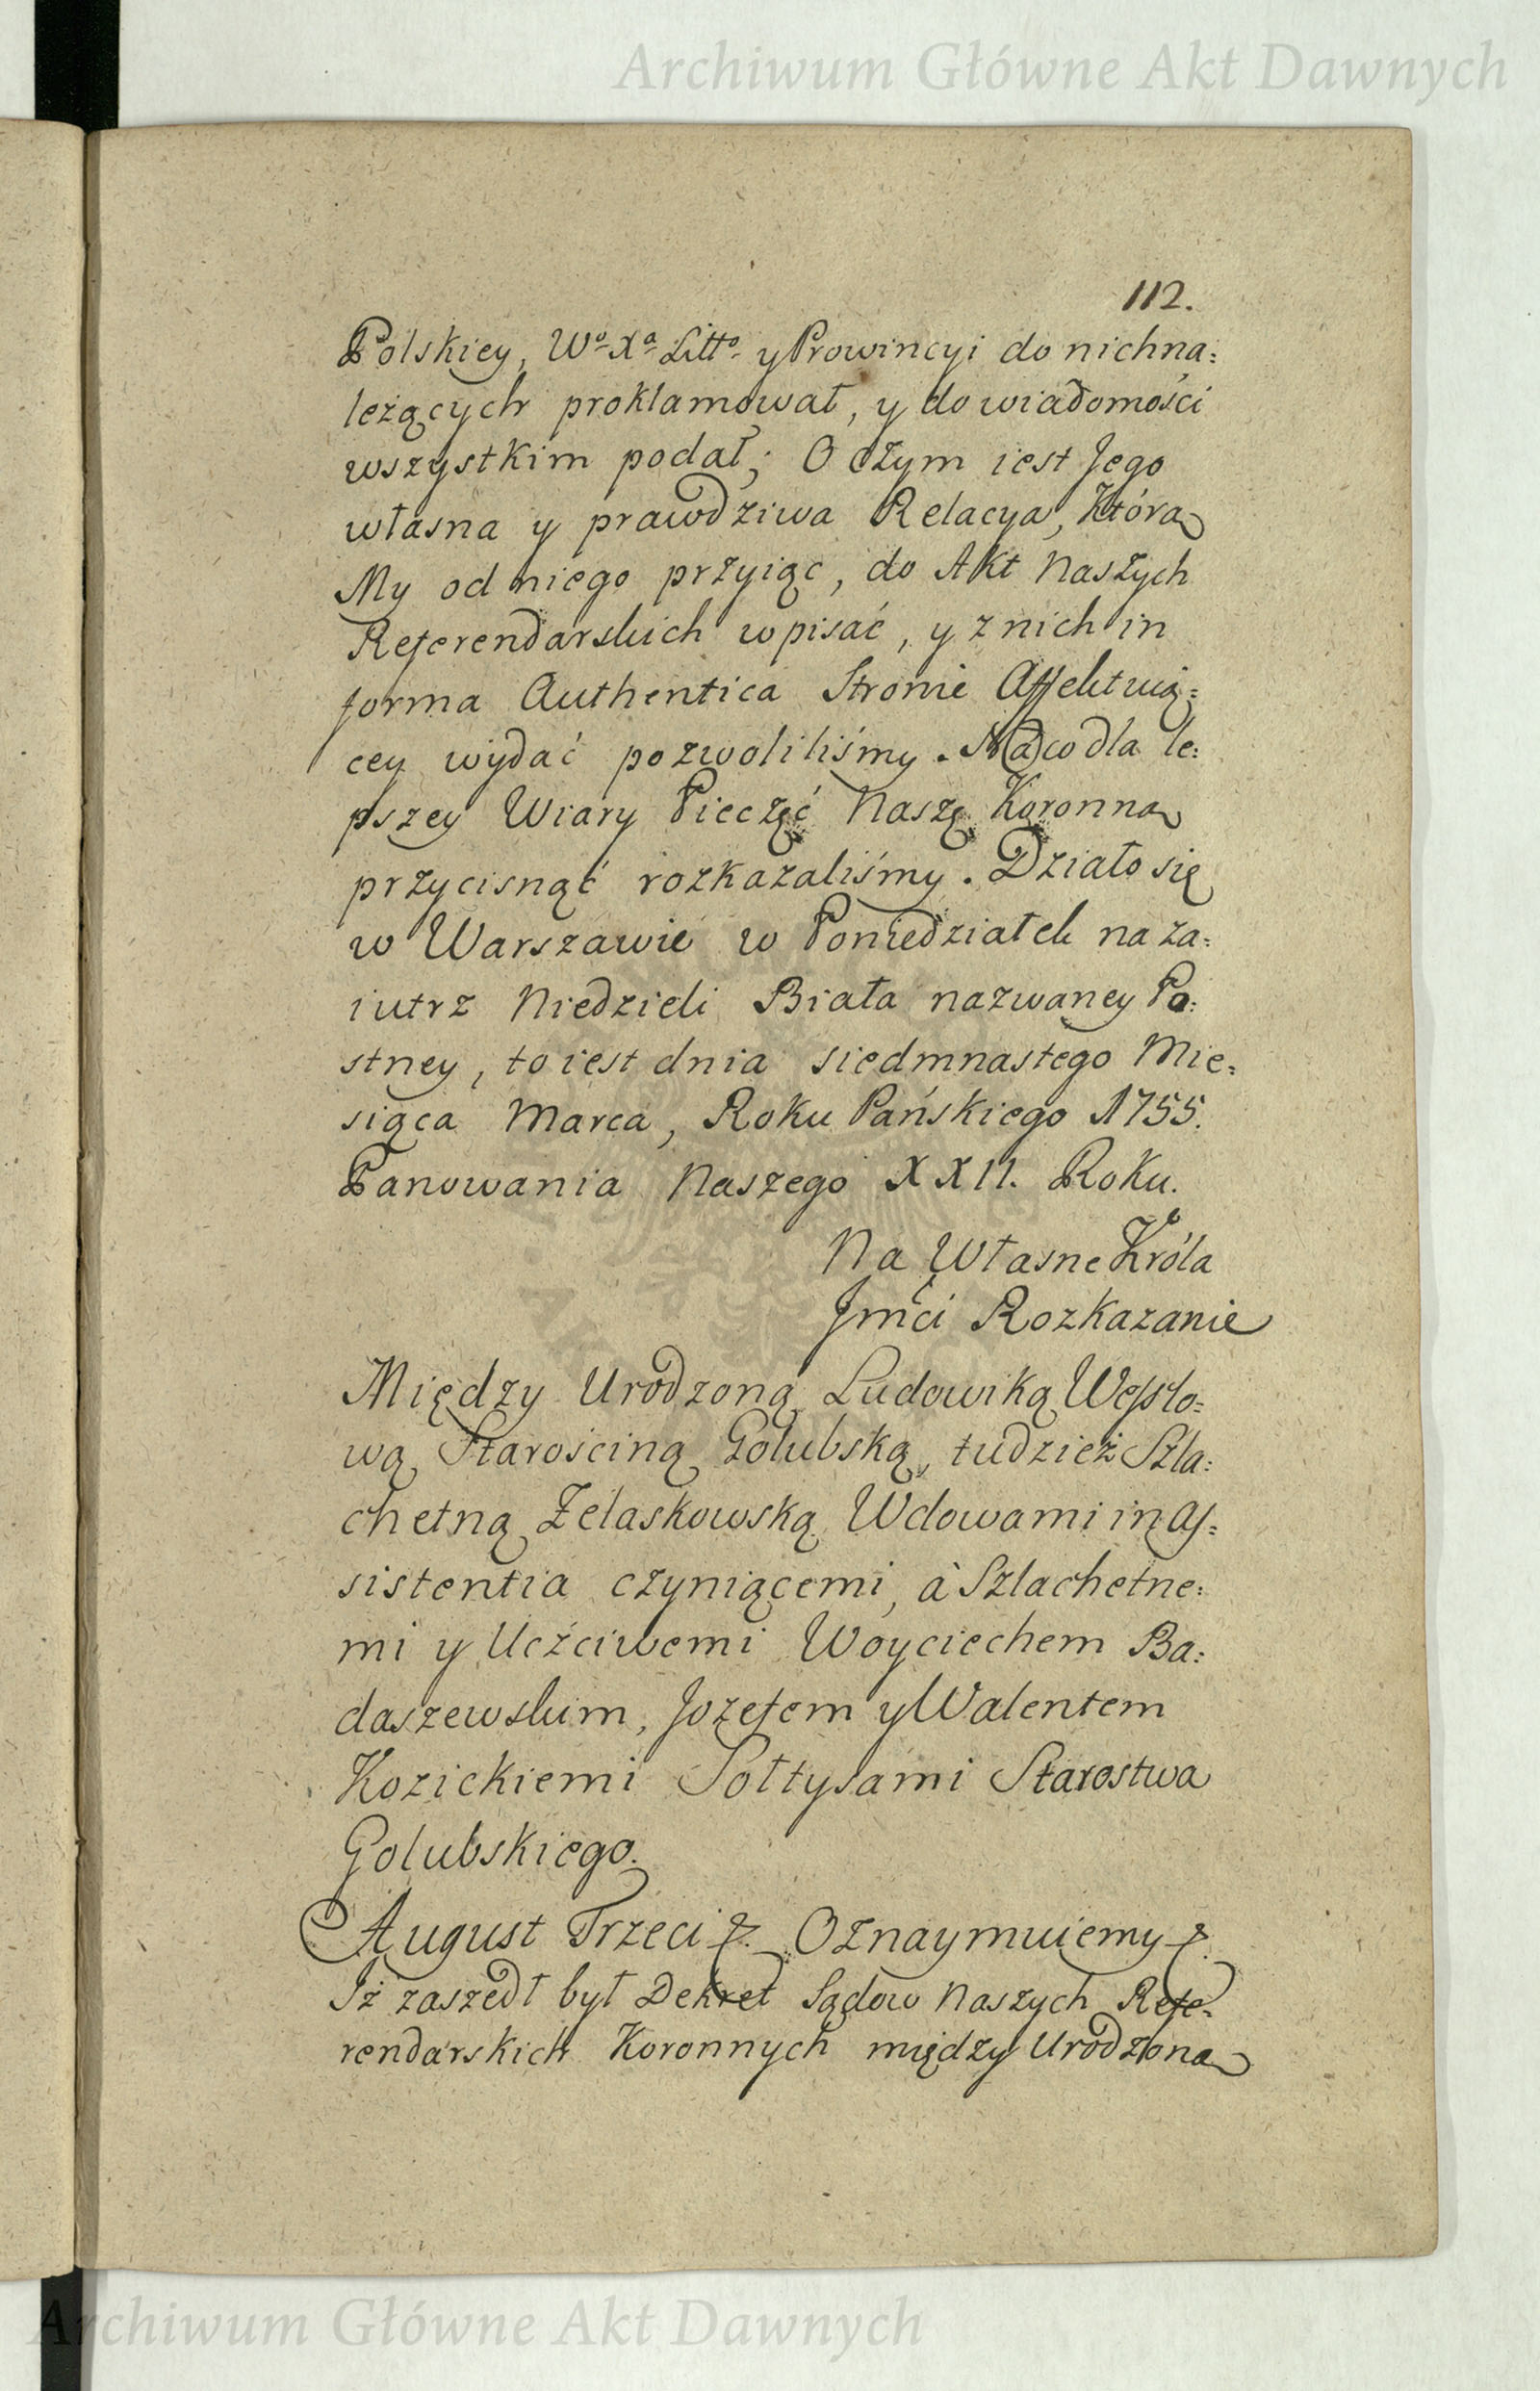 Archiwum Główne Akt Dawnych
112.
Polskiey, Wº Xª Littº y Prowincyi do nich na:
leżących proklamował, y do wiadomości
wszystkim podał; O czym iest Jego
własna y prawdziwa Relacya, Którą
My od niego przyiąc, do Akt Naszych
Referendarskich wpisać, y z nich in
forma Authentica Stronie Affektuią:
cey wydać pozwoliliśmy. Na co dla le:
pszey Wiary Pieczęć Naszę Koronną
przycisnąć rozkazaliśmy. Działo się
w Warszawie w Poniedziałek na za:
iutrz Niedzieli Biała nazwaney Po:
stney, to iest dnia siedmnastego Mie:
siąca Marca, Roku Pańskiego 1755.
Panowania Naszego XXII. Roku.
Na Własne Króla
Jmći Rozkazanie
Między Urodzoną Ludowiką Wessło:
wą Starościną Golubską, tudzież Szla:
chetną Żelaskowską Wdowami in as:
sistentia czyniącemi, à Szlachetne:
mi y Uczciwemi Woyciechem Ba:
daszewskim, Jozefem y Walentem
Kozickiemi Sołtysami Starostwa
Golubskiego.
August Trzeci &. Oznaymuiemy &.
Iż zaszedł był Dekret Sądow Naszych Refe:
rendarskich Koronnych między Urodzoną
Archiwum Główne Akt Dawnych